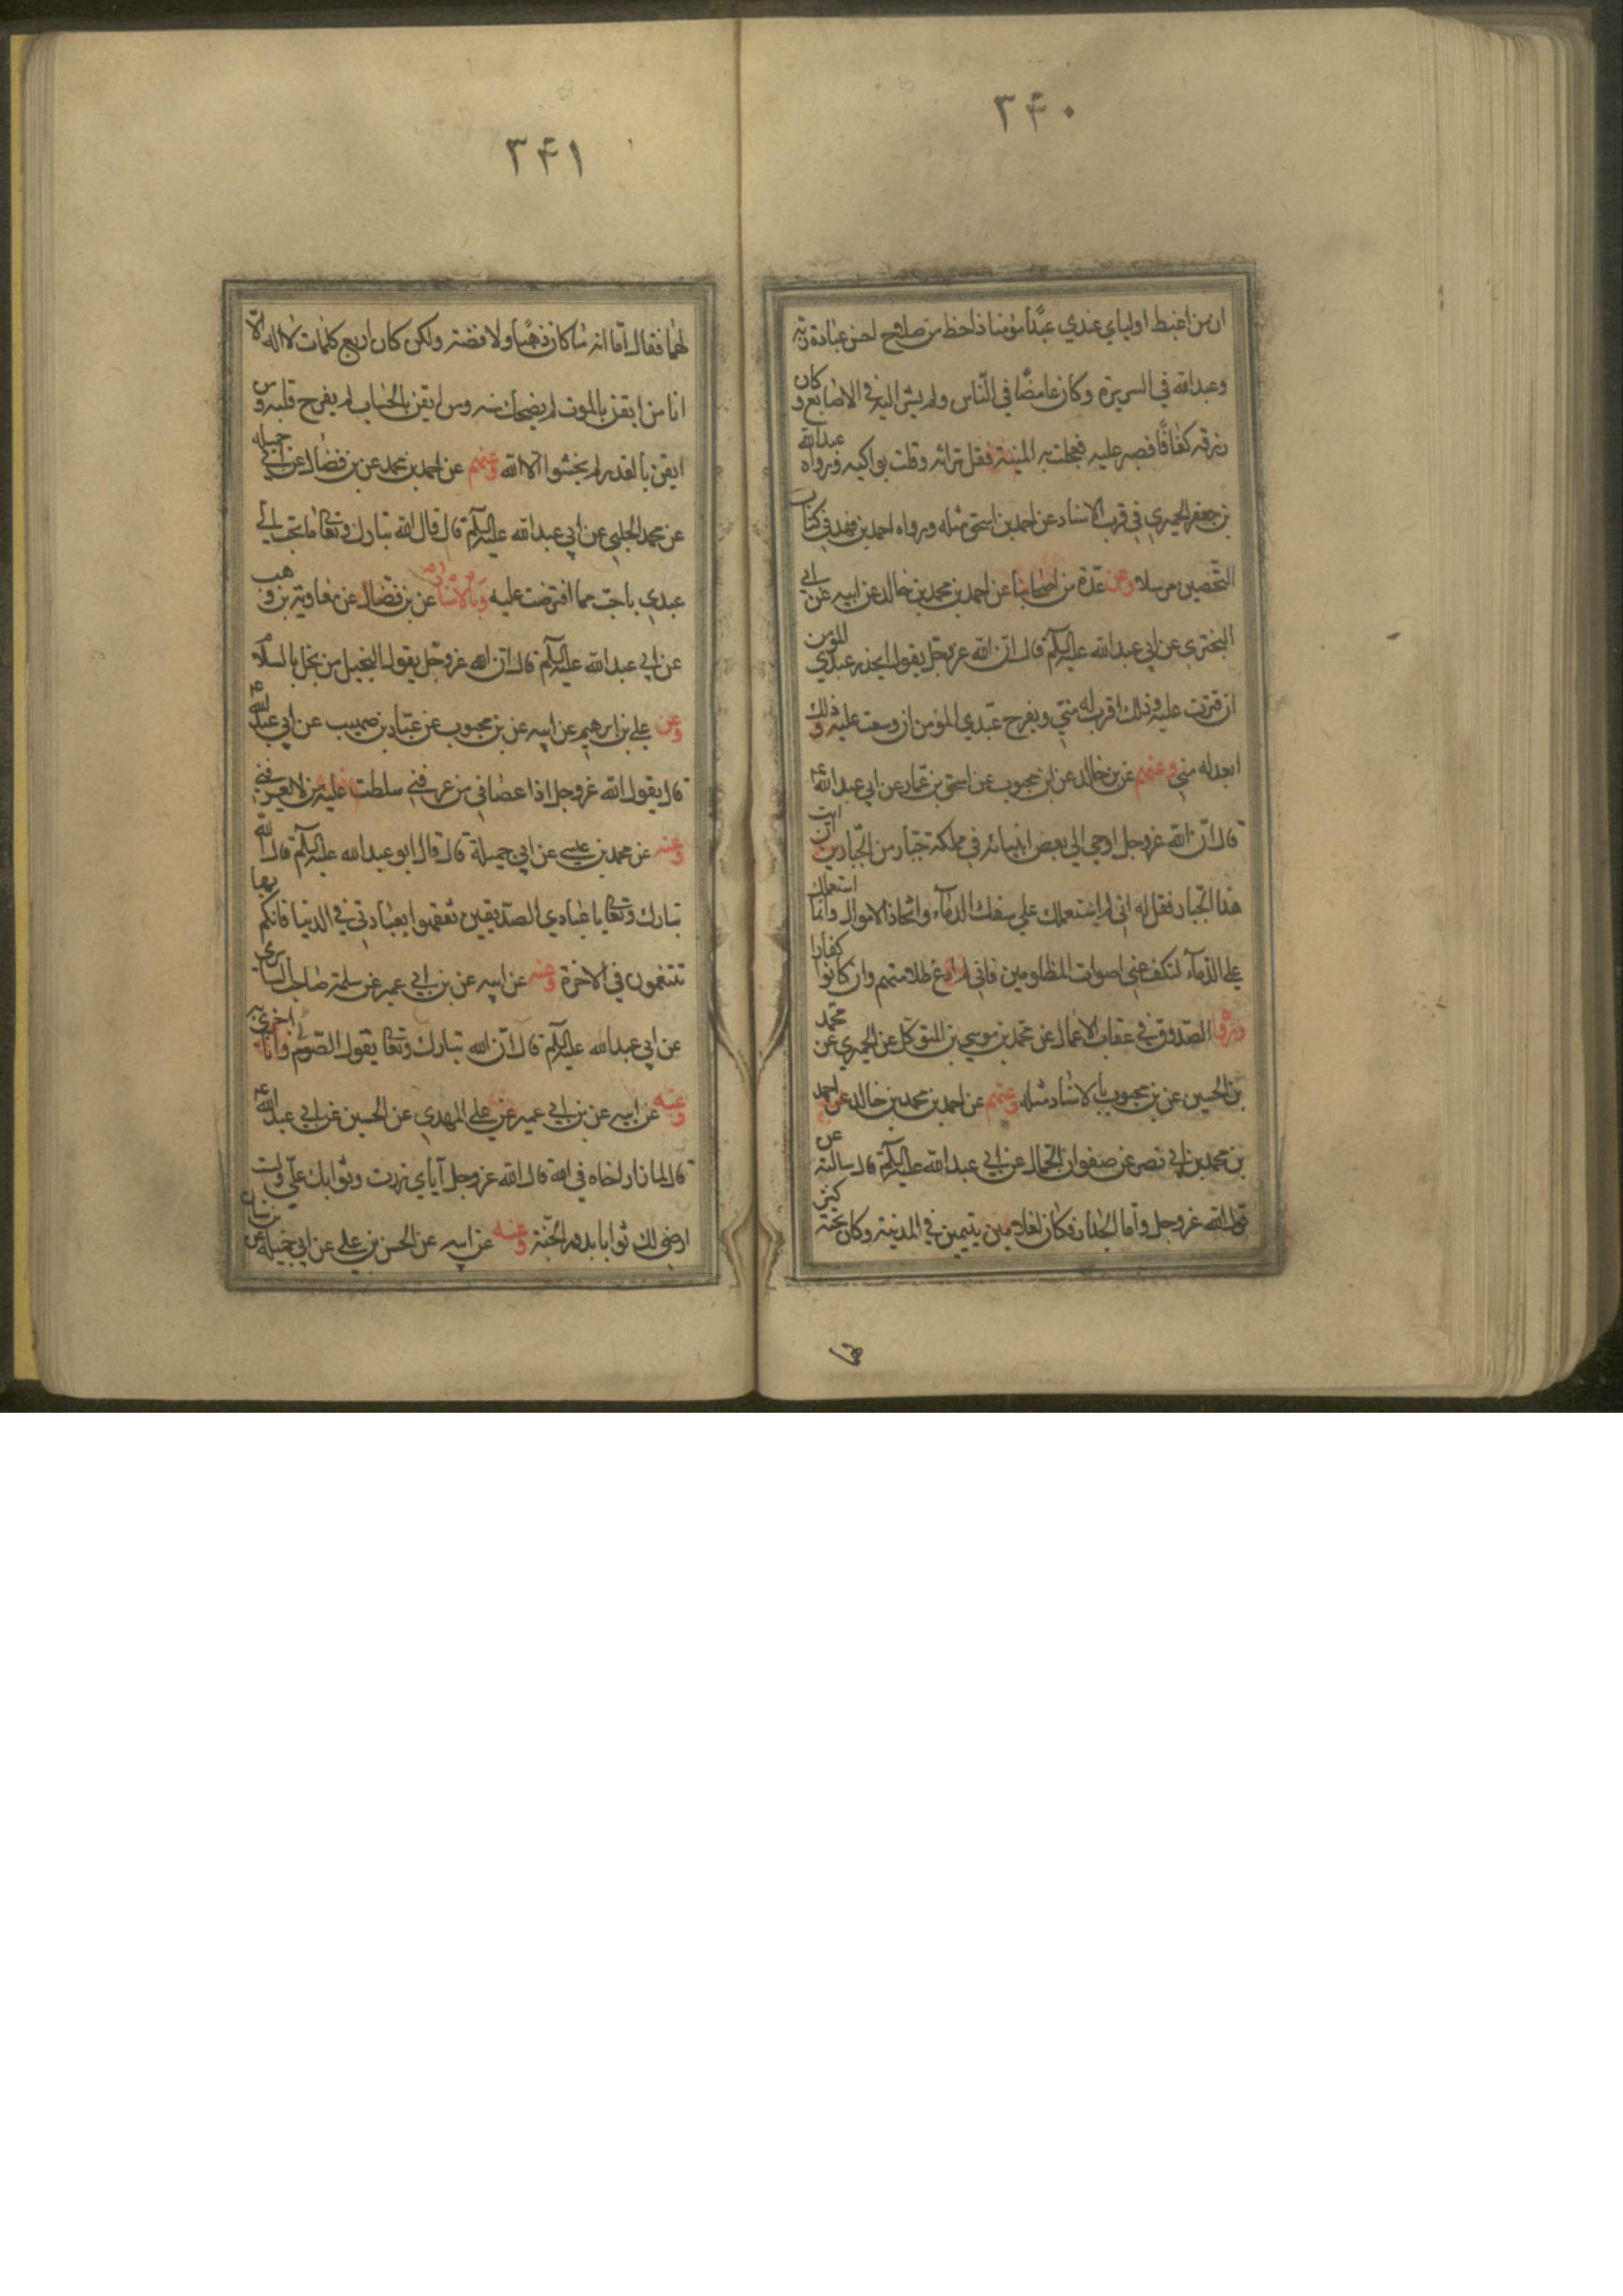 ۳۴۰
ان من اغبط اوليای عندي عبدًا مؤمنا ذا حظ من صلاح احسن عبادة ربه
وعبد الله في السريرة وكان غامضًا في النّاس ولم يشر اليه في الاصابع و كان
رزقه كفافًا فصبر عليه فعجلت به المنية فقل تراثه وقلت بواكيه ورواه عبدالله
بن جعفر الحميري في قرب الاسناد عن احمد بن اسحق مثله ورواه احمد بن فهد في كتاب
التّحصين مرسلا وعن عدّة من اصحابنا عن احمد بن محمد بن خالد عن ابيه عن ابي
البختري عن ابي عبدالله عليه السلم قال انّ الله عزوجل يقول يحذر عبدي المؤمن
ان قترت عليه وذلك اقرب له منّي ويفرح عبدي المؤمن ان وسعت عليه و ذلك
ابعد له منّي وعنهم عن بن خالد عن ابن محبوب عن اسحق بن عمار عن ابي عبدالله ع
قال انّ الله عزوجل اوحي الي بعض انبيائه في مملكة جبّار من الجبّارين ان ائت
هذا الجبار فقل له انّي لم استعملك علي سفك الدمآء واتخاذ الاموال وانما استعملتك
علي الدمآء لتكف عني اصوات المظلومين فاني لم ادع ظلامتهم وان كانوا كفارا
ورواه الصّدوق في عقاب الاعمال عن محمد بن موسي بن المتوكّل عن الحميري عن محمد
بن الحسين عن بن محبوب بالاسناد مثله وعنهم عن احمد بن محمد بن خالد عن احمد
بن محمد بن ابي نصر عن صفوان الجمّال عن ابي عبدالله عليه السلم قال سالته عن
قول الله عزوجل وامّا الجدار فكان لغلامين يتيمين في المدينة وكان تحته كنز
لهما
۳۴۱
لهما فقال امّا انه ما كان ذهبًا ولا فضة ولكن كان اربع كلمات لا اله الّا
انا من ايقن بالموت لم يضحك سنه ومن ايقن بالحساب لم يفرح قلبه و من
ايقن بالقدر لم يخشوا الا الله وعنهم عن احمد بن محمد عن بن فضال عن ابي جميله
عن محمد الحلبي عن ابي عبدالله عليه السلم قال قال الله تبارك وتعالي ما تحبب الي
عبدي باحبّ مما افترضت عليه وبالاسناد عن بن فضال عن معاوية بن وهب
عن ابي عبدالله عليه السلم قال انّ الله عزوجل يقول البخيل من بخل بالسلام
وعن علي بن ابرهيم عن ابيه عن بن محبوب عن عبّاد بن صهيب عن ابي عبدالله ع
قال يقول الله عزوجل اذا عصاني من عرفني سلطت عليه من لا يعرفني
وعنه عن محمد بن عيسي عن ابي جميلة قال قال ابو عبدالله عليه السلم قال الله
تبارك وتعالي يا عبادي الصدّيقين تنعّموا بعبادتي في الدنيا فانكم بها
تتنعمون في الاخرة وعنه عن ابيه عن بن ابي عمير عن سلمة صاحب السابري
عن ابي عبدالله عليه السلم قال انّ الله تبارك وتعالي يقول الصّوم لي وانا اجزي به
وعنه عن ابيه عن بن ابي عمير عن علي المهدي عن الحسين عن ابي عبدالله ع
قال من زار اخاه في الله قال الله عزوجل اياي زرت وثوابك عليّ ولست
ارضي لك ثوابا بدون الجنّة وعنه عن ابيه عن الحسن بن علي عن ابي جميله عن بن سنان